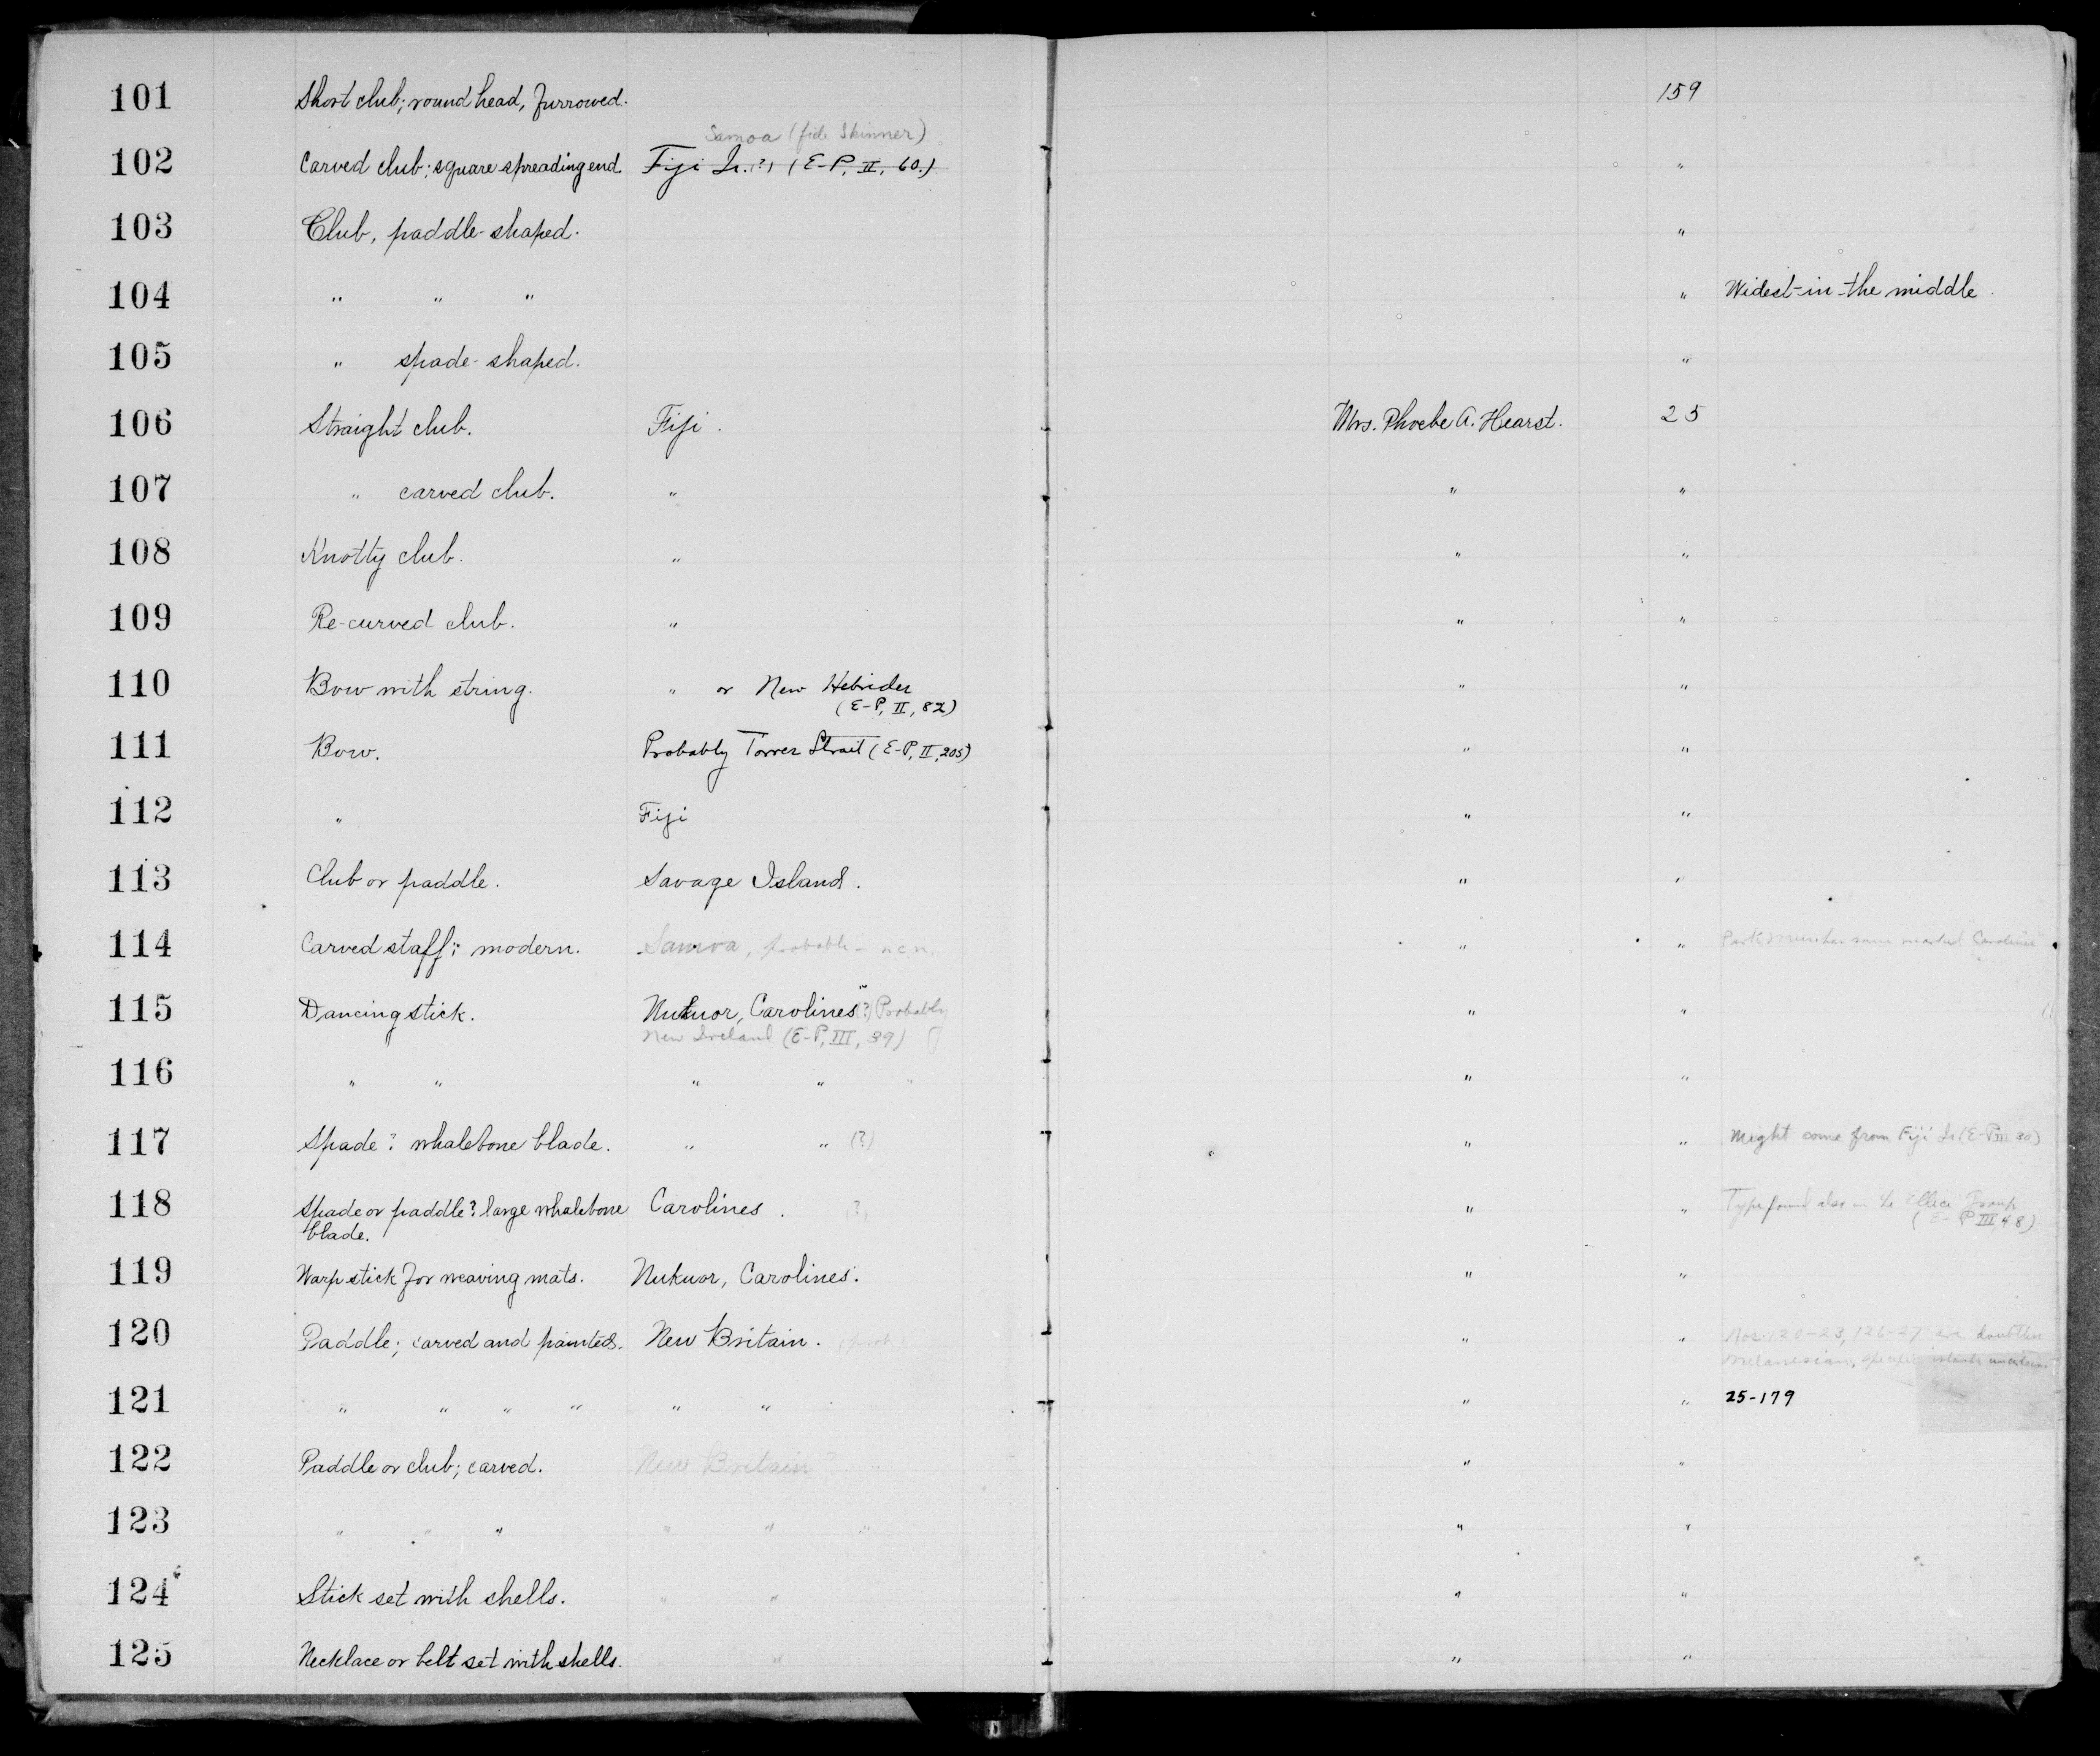 101 Short club; round head, furrowed. 159
Samoa (fide Skinner)
102 Carved club; square spreading end. Fiji Is. (?) (E-P, II, 60.) "
103 Club, paddle-shaped. "
104 " " " " Widest in the middle.
105 " spade-shaped. "
106 Straight club. Fiji. Mrs. Phoebe A. Hearst. 25
107 " carved club. " " "
108 Knotty club. " " "
109 Re-curved club. " " "
110 Bow with string. " or New Hebrides " "
(E-P, II, 82)
111 Bow. Probably Torres Strait (E-P, II, 205) " "
112 " Fiji " "
113 Club or paddle. Savage Island. " "
114 Carved staff; modern. Samoa, probable - " " same marked Carolines
115 Dancing stick. Nukuor, Carolines (?) Probably " "
New Ireland (E-P, III, 39)
116 " " " " " " "
117 Spade? whalebone blade. " " (?) " " Might come from Fiji Is (E-P III 30)
118 Spade or paddle? large whalebone Carolines. (?) " " Type found also in the Ellice Group
blade. (E-P III 48)
119 Warp stick for weaving mats. Nukuor, Carolines. " "
120 Paddle; carved and painted. New Britain. (prob.) " " Nos. 120-23, 126-27 are doubtless
Melanesian, specific islands uncertain
121 " " " " " " " " 25-179
122 Paddle or club; carved. New Britain? " " "
123 " " " " " " " "
124 Stick set with shells. " " " "
125 Necklace or belt set with shells. " " "